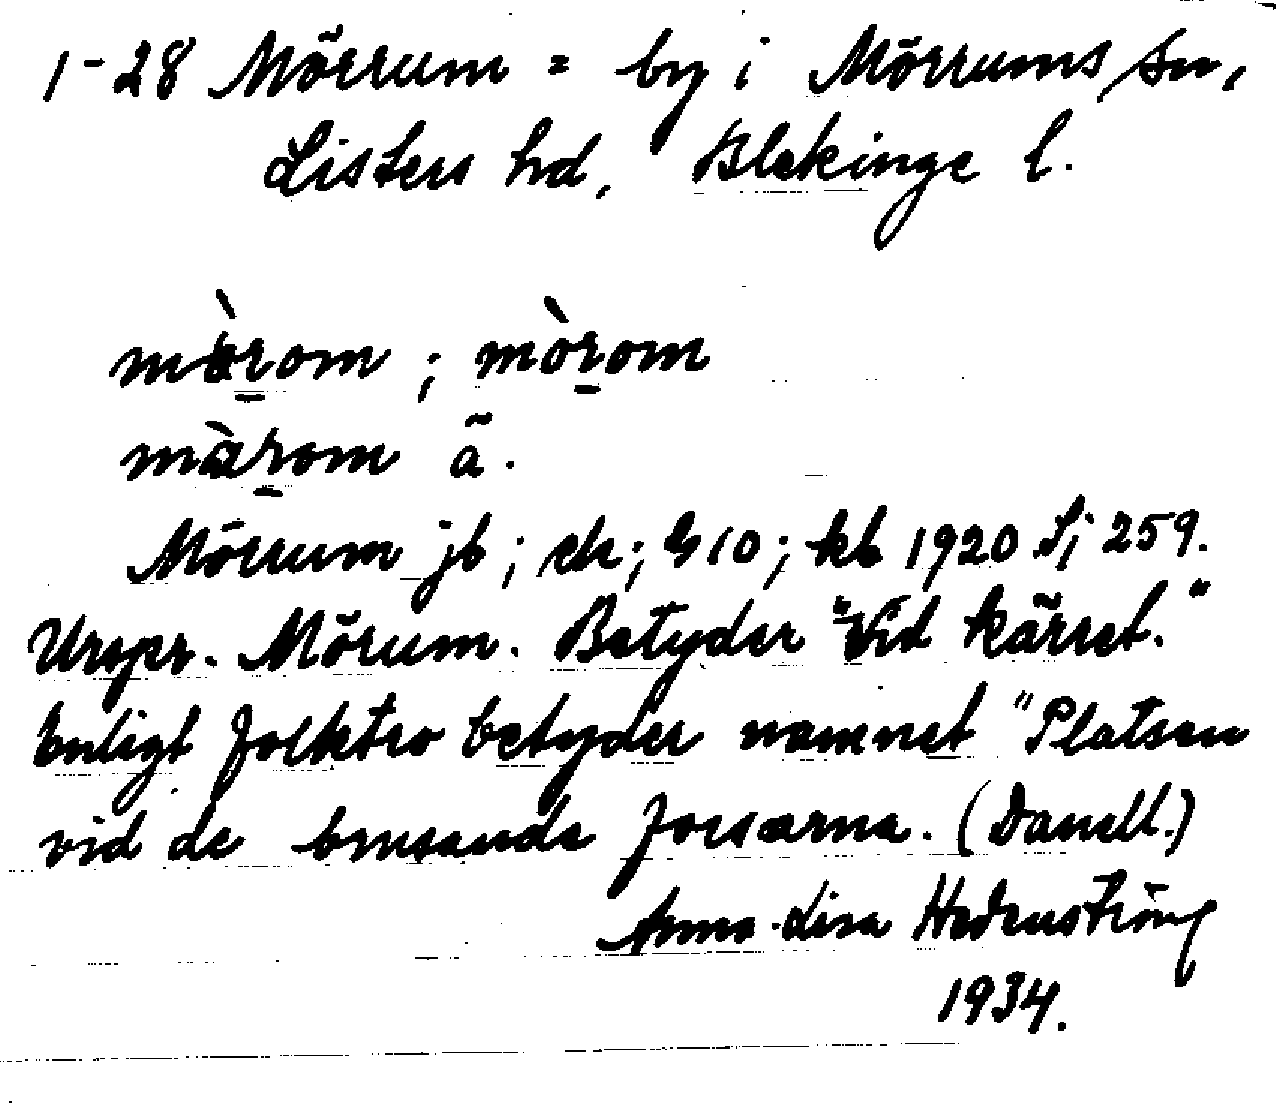 1-28 Mörrum = by i Mörrums sn,
Listers hd, Blekinge l.
màrom ; mòrom
màrom å.
Mörrum jb ; ek ; G 10 ; kb 1920 S; 259.
Urspr. Mörum. Betyder "Vid kärret."
Enligt folktro betyder namnet "Platsen
vid de brusande forsarna. (Danell.)
Anna-Lisa Hedenström
1934.